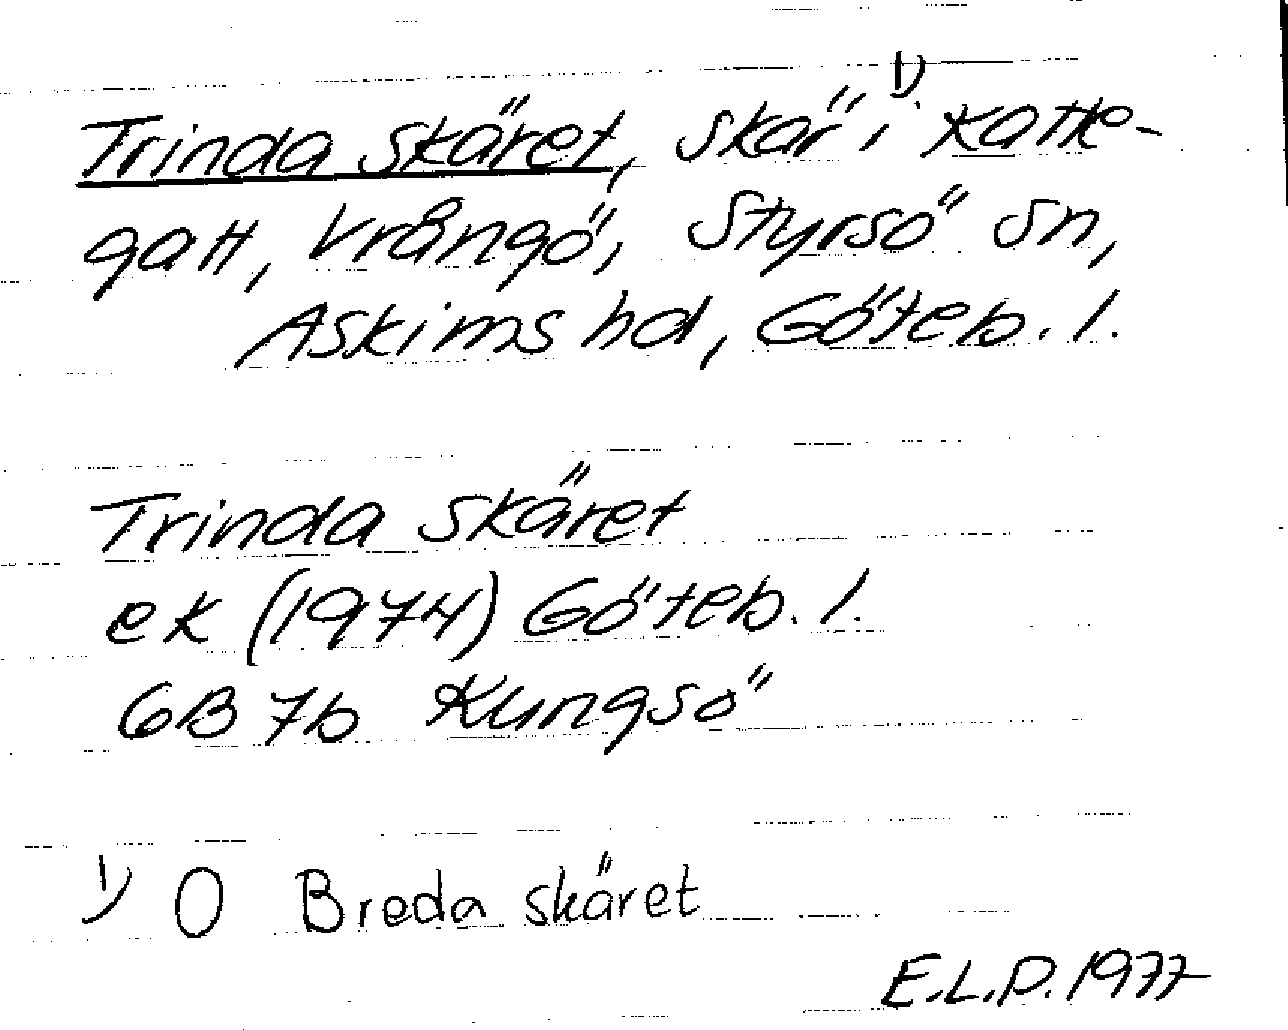 Trinda skäret, skär i 1) Katte-
gatt, Vrångö, Styrsö sn,
Askims hd, Göteb. l.
Trinda skäret
ek (1974) Göteb. l.
6B 7b Kungsö
1) O Breda skäret
E.L.P. 1977